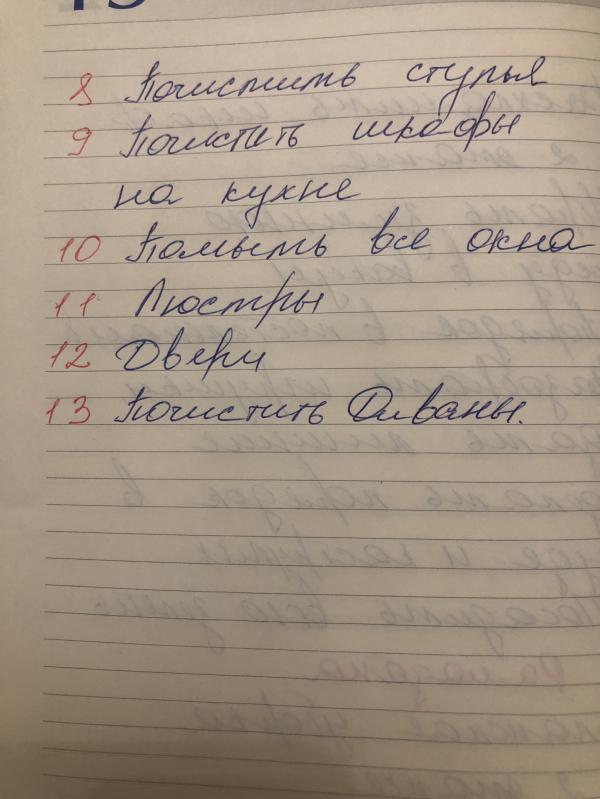 8 Почистить стулья
9 Почистить шкафы
на кухне
10 Помыть все окна
11 Люстры
12 Двери
13 Почистить Диваны.